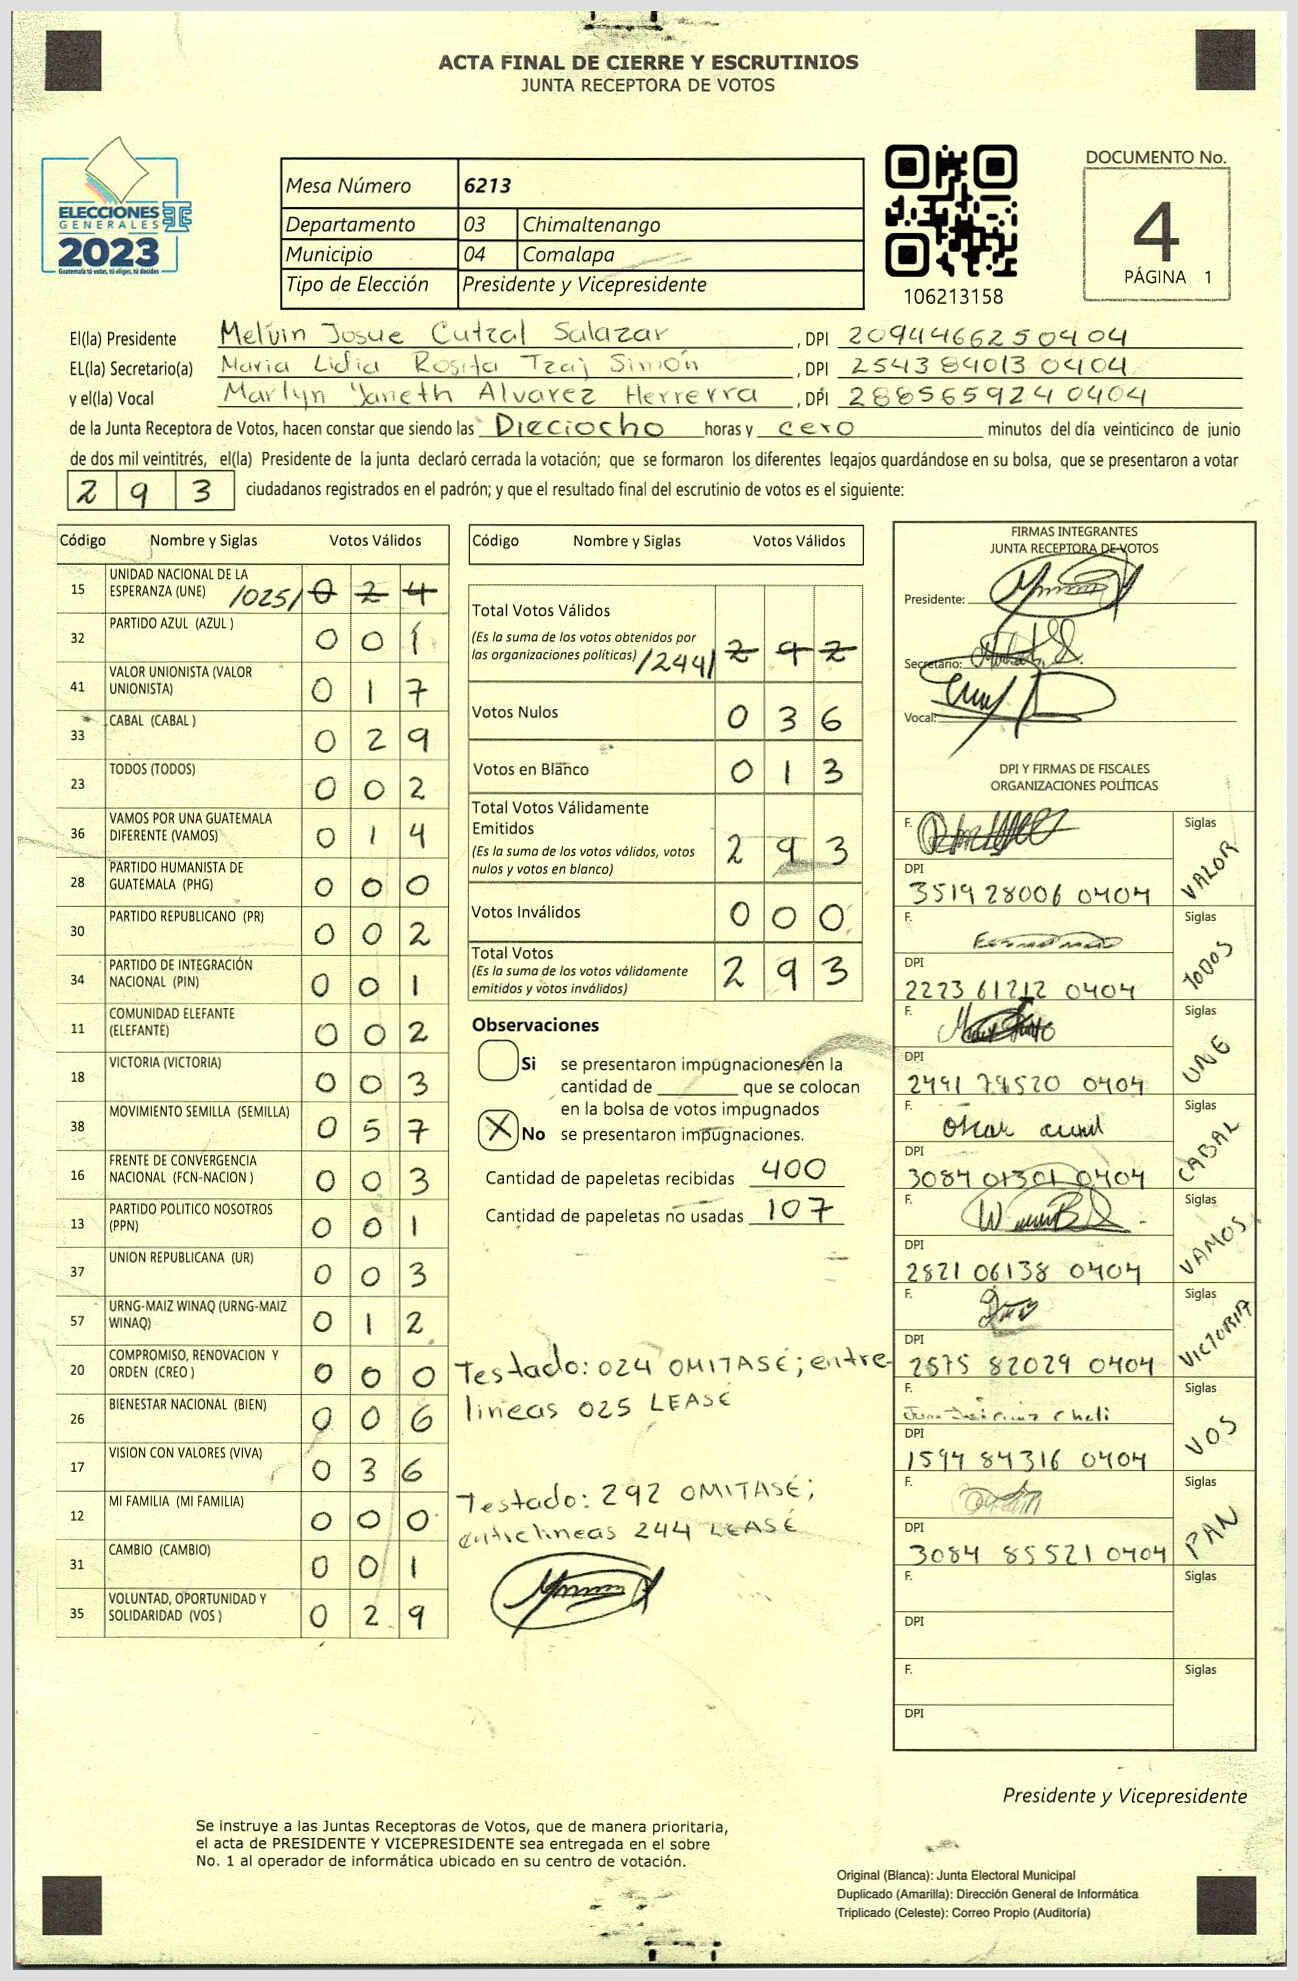 ACTA FINAL DE CIERRE Y ESCRUTINIOS
JUNTA RECEPTORA DE VOTOS
ELECCIONES
GENERALES
2023
Guatemala tú votas, tú eliges, tú decides
Mesa Número 6213
Departamento 03 Chimaltenango
Municipio 04 Comalapa
Tipo de Elección Presidente y Vicepresidente
106213158
DOCUMENTO No.
4
PÁGINA 1
El(la) Presidente Melvin Josue Cutzal Salazar, DPI 2094466250404
EL(la) Secretario(a) Maria Lidia Rosita Tzaj Simón, DPI 254384013 0404
y el(la) Vocal Marlyn Yaneth Alvarez Herrerra, DPI 288565924 0404
de la Junta Receptora de Votos, hacen constar que siendo las Dieciocho horas y cero minutos del día veinticinco de junio
de dos mil veintitrés, el(la) Presidente de la junta declaró cerrada la votación; que se formaron los diferentes legajos guardándose en su bolsa, que se presentaron a votar
293 ciudadanos registrados en el padrón; y que el resultado final del escrutinio de votos es el siguiente:
Código Nombre y Siglas Votos Válidos
15 UNIDAD NACIONAL DE LA
ESPERANZA (UNE) /025/ 024
32 PARTIDO AZUL (AZUL ) 001
41 VALOR UNIONISTA (VALOR
UNIONISTA) 017
33 CABAL (CABAL ) 029
23 TODOS (TODOS) 002
36 VAMOS POR UNA GUATEMALA
DIFERENTE (VAMOS) 014
28 PARTIDO HUMANISTA DE
GUATEMALA (PHG) 000
30 PARTIDO REPUBLICANO (PR) 002
34 PARTIDO DE INTEGRACIÓN
NACIONAL (PIN) 001
11 COMUNIDAD ELEFANTE
(ELEFANTE) 002
18 VICTORIA (VICTORIA) 003
38 MOVIMIENTO SEMILLA (SEMILLA) 057
16 FRENTE DE CONVERGENCIA
NACIONAL (FCN-NACION ) 003
13 PARTIDO POLITICO NOSOTROS
(PPN) 001
37 UNION REPUBLICANA (UR) 003
57 URNG-MAIZ WINAQ (URNG-MAIZ
WINAQ) 012
20 COMPROMISO, RENOVACION Y
ORDEN (CREO ) 000
26 BIENESTAR NACIONAL (BIEN) 006
17 VISION CON VALORES (VIVA) 036
12 MI FAMILIA (MI FAMILIA) 000
31 CAMBIO (CAMBIO) 001
35 VOLUNTAD, OPORTUNIDAD Y
SOLIDARIDAD (VOS ) 029
Código Nombre y Siglas Votos Válidos
Total Votos Válidos
(Es la suma de los votos obtenidos por
las organizaciones políticas) /244/ 292
Votos Nulos 036
Votos en Blanco 013
Total Votos Válidamente
Emitidos
(Es la suma de los votos válidos, votos
nulos y votos en blanco) 293
Votos Inválidos 000
Total Votos
(Es la suma de los votos válidamente
emitidos y votos inválidos) 293
Observaciones
Si se presentaron impugnaciones en la
cantidad de ________ que se colocan
en la bolsa de votos impugnados
X No se presentaron impugnaciones.
Cantidad de papeletas recibidas 400
Cantidad de papeletas no usadas 107
Testado: 024 OMITASÉ; entre-
lineas 025 LEASÉ
Testado: 292 OMITASÉ;
entrelineas 244 LEASÉ
FIRMAS INTEGRANTES
JUNTA RECEPTORA DE VOTOS
Presidente:
Secretario:
Vocal:
DPI Y FIRMAS DE FISCALES
ORGANIZACIONES POLÍTICAS
F. Siglas VALOR
DPI
3519 28006 0404
F. Siglas TODOS
DPI
2223 61212 0404
F. Siglas UNE
DPI
2491 79520 0404
F. Siglas CABAL
DPI
3084 01301 0404
F. Siglas VAMOS
DPI
2821 06138 0404
F. Siglas VICTORIA
DPI
2575 82029 0404
F. Siglas VOS
DPI
1594 84316 0404
F. Siglas PAN
DPI
3084 85521 0404
F. Siglas
DPI
F. Siglas
DPI
Presidente y Vicepresidente
Se instruye a las Juntas Receptoras de Votos, que de manera prioritaria,
el acta de PRESIDENTE Y VICEPRESIDENTE sea entregada en el sobre
No. 1 al operador de informática ubicado en su centro de votación.
Original (Blanca): Junta Electoral Municipal
Duplicado (Amarilla): Dirección General de Informática
Triplicado (Celeste): Correo Propio (Auditoría)